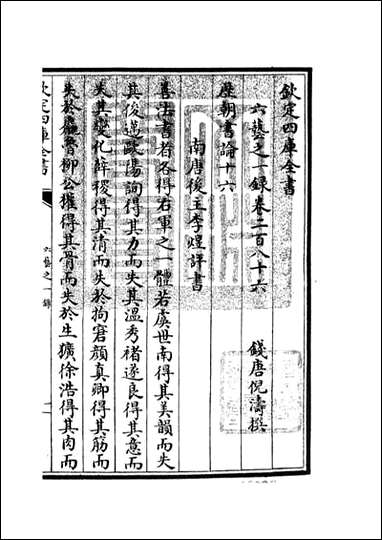 欽定四庫全書
六藝之一録卷二百八十六
錢唐倪濤撰
歷朝書論十六
南唐後主李煜評書
善法書者各得右軍之一體若虞世南得其美韻而失
其俊邁歐陽詢得其力而失其溫秀褚遂良得其意而
失其變化薛稷得其清而失於拘窘顏真卿得其筋而
失於麤魯柳公權得其骨而失於生獷徐浩得其肉而
欽定四庫全書
六藝之一録
一